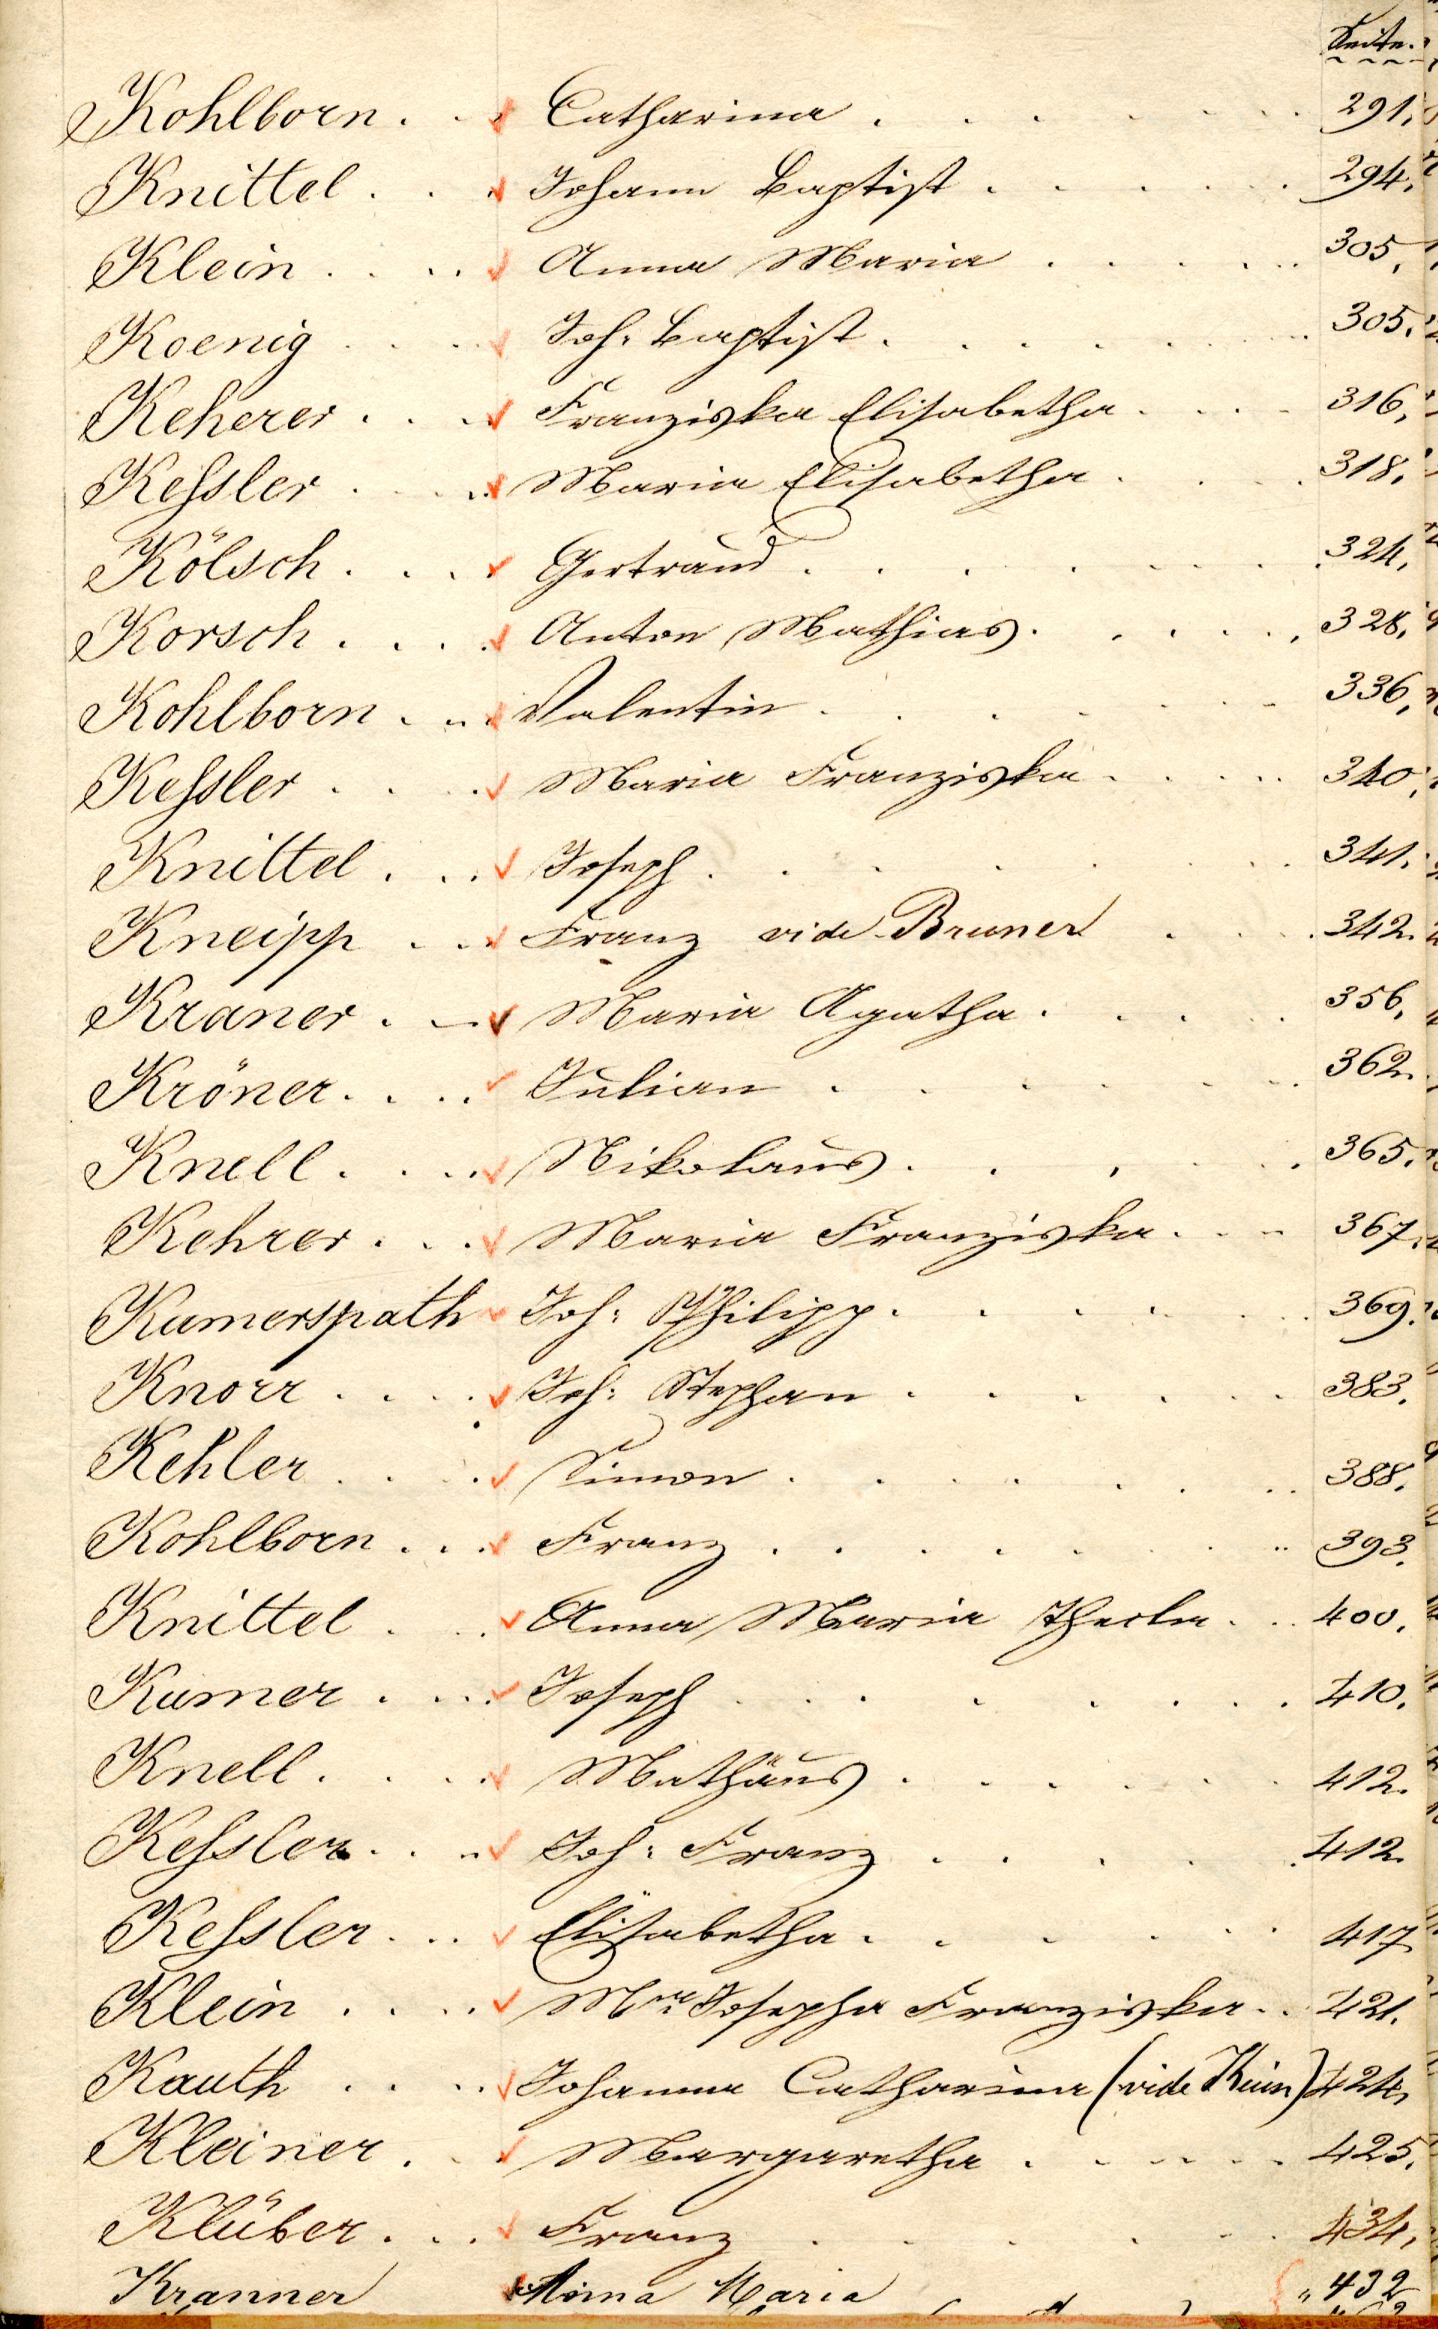 Seite.
Kohlborn . . . Catharina . . . . . . . 291.
Knittel . . . Johann Baptist . . . . . . 294.
Klein . . . . Anna Maria . . . . . . 305.
Koenig . . . . Joh: Baptist . . . . . . . 305.
Keherer . . . Franziska Elisabetha . . . . 316.
Keſsler . . . . Maria Elisabetha . . . . 318.
Kölsch . . . . Gertraud . . . . . . . 324.
Korsch . . . . Anton Mathias . . . . . . 328.
Kohlborn . . . Valentin . . . . . . . 336.
Keſsler . . . . Maria Franziska . . . . . 340.
Knittel . . . Joseph . . . . . . . 341.
Kneipp . . . Franz vide Bruner . . . . 342.
Kraner . . . Maria Agatha . . . . . 356.
Kröner . . . . Julian . . . . . . . 362.
Knell . . . . Nikolaus . . . . . . 365.
Kehrer . . . Maria Franziska . . . . 367.
Kumerspath Joh: Philipp . . . . . . 369.
Knorr . . . . Joh: Stephan . . . . . . 383.
Kehler . . . . Simon . . . . . . . 388.
Kohlborn . . . Franz . . . . . . . 393.
Knittel . . . Anna Maria Thecla . . . 400.
Kumer . . . . Joseph . . . . . . . 410.
Knell . . . . Mathäus . . . . . . 412.
Keſsler . . . Joh: Franz . . . . . . 412.
Keſsler . . . Elisabetha . . . . . . 417
Klein . . . . Mra Josepha Franziska . . 421.
Kauth . . . . Johanna Catharina (vide Kein) 424.
Kleiner . . . Margaretha . . . . . . 425.
Klüber . . . Franz . . . . . . . 434.
Kranner Anna Maria " 432